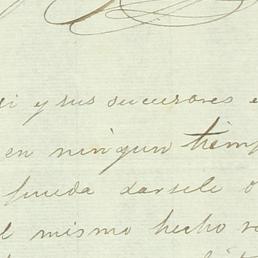 y sus sucesores
en ningun tiemp
pueda darsele o
el mismo hecho